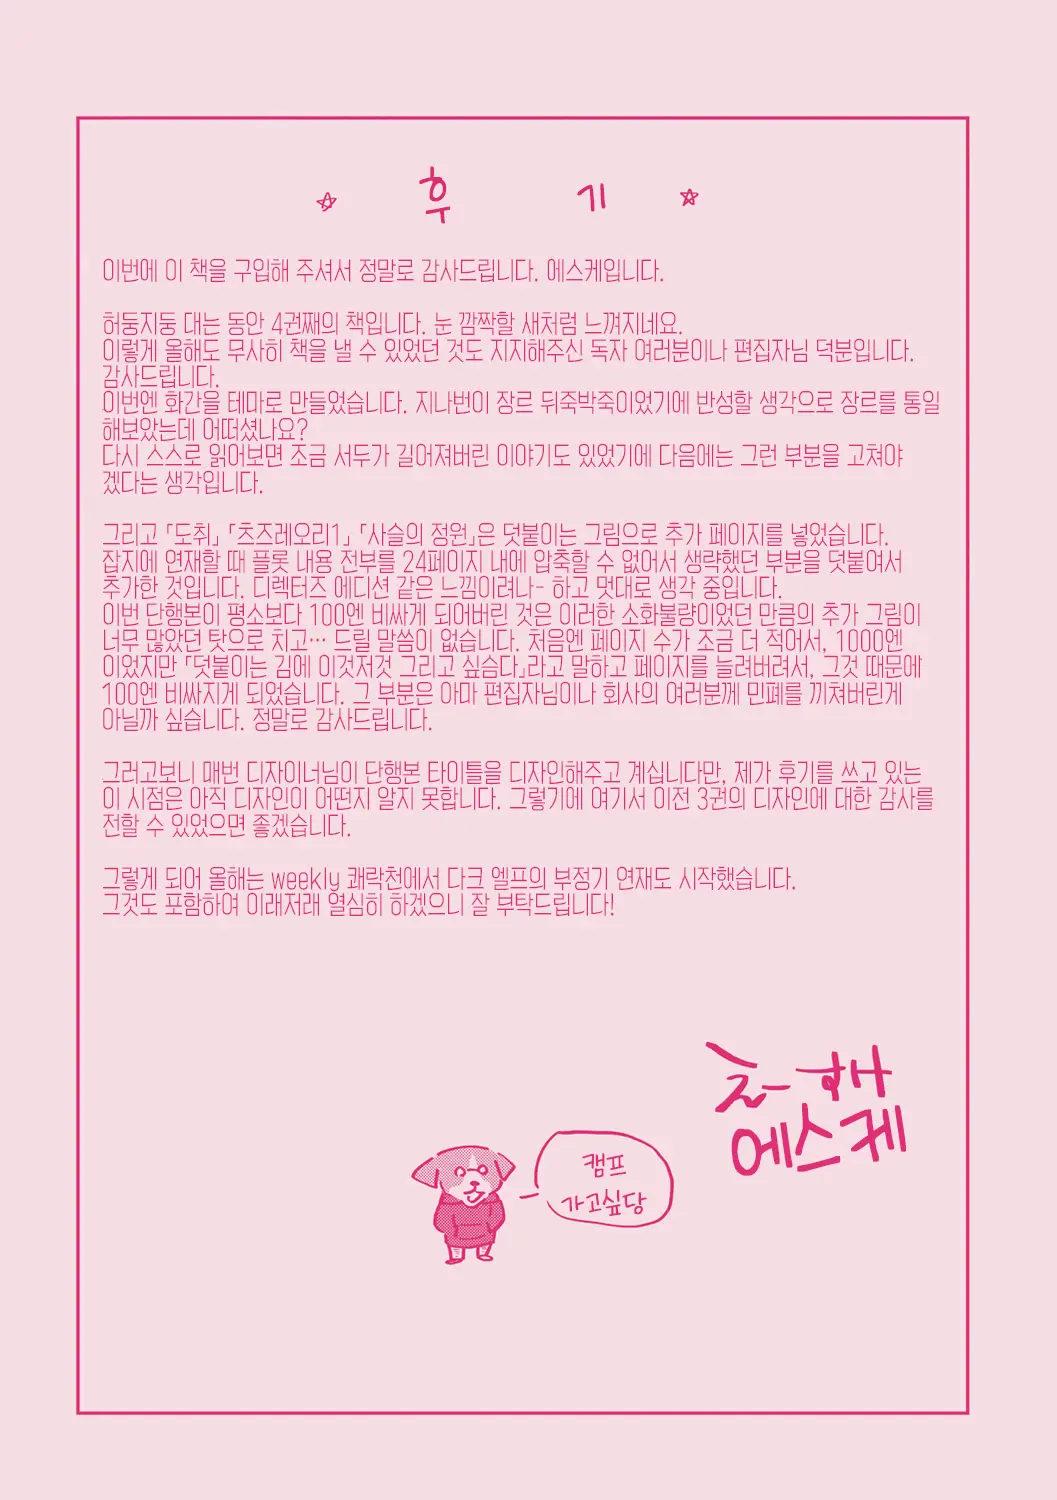 후 기
이번에 이 책을 구입해 주셔서 정말로 감사드립니다. 에스케입니다.
허둥지둥 대는 동안 4권째의 책입니다. 눈 깜짝할 새처럼 느껴지네요.
이렇게 올해도 무사히 책을 낼 수 있었던 것도 지지해주신 독자 여러분이나 편집자님 덕분입니다.
감사드립니다.
이번엔 화간을 테마로 만들었습니다. 지나번이 장르 뒤죽박죽이었기에 반성할 생각으로 장르를 통일
해보았는데 어떠셨나요?
다시 스스로 읽어보면 조금 서두가 길어져버린 이야기도 있었기에 다음에는 그런 부분을 고쳐야
겠다는 생각입니다.
그리고 「도취」 「츠즈레오리1」 「사슬의 정원」은 덧붙이는 그림으로 추가 페이지를 넣었습니다.
잡지에 연재할 때 플롯 내용 전부를 24페이지 내에 압축할 수 없어서 생략했던 부분을 덧붙여서
추가한 것입니다. 디렉터즈 에디션 같은 느낌이려나- 하고 멋대로 생각 중입니다.
이번 단행본이 평소보다 100엔 비싸게 되어버린 것은 이러한 소화불량이었던 만큼의 추가 그림이
너무 많았던 탓으로 치고… 드릴 말씀이 없습니다. 처음엔 페이지 수가 조금 더 적어서, 1000엔
이었지만 「덧붙이는 김에 이것저것 그리고 싶슴다」라고 말하고 페이지를 늘려버려서, 그것 때문에
100엔 비싸지게 되었습니다. 그 부분은 아마 편집자님이나 회사의 여러분께 민폐를 끼쳐버린게
아닐까 싶습니다. 정말로 감사드립니다.
그러고보니 매번 디자이너님이 단행본 타이틀을 디자인해주고 계십니다만, 제가 후기를 쓰고 있는
이 시점은 아직 디자인이 어떤지 알지 못합니다. 그렇기에 여기서 이전 3권의 디자인에 대한 감사를
전할 수 있었으면 좋겠습니다.
그렇게 되어 올해는 weekly 쾌락천에서 다크 엘프의 부정기 연재도 시작했습니다.
그것도 포함하여 이래저래 열심히 하겠으니 잘 부탁드립니다!
에스케
캠프
가고싶당